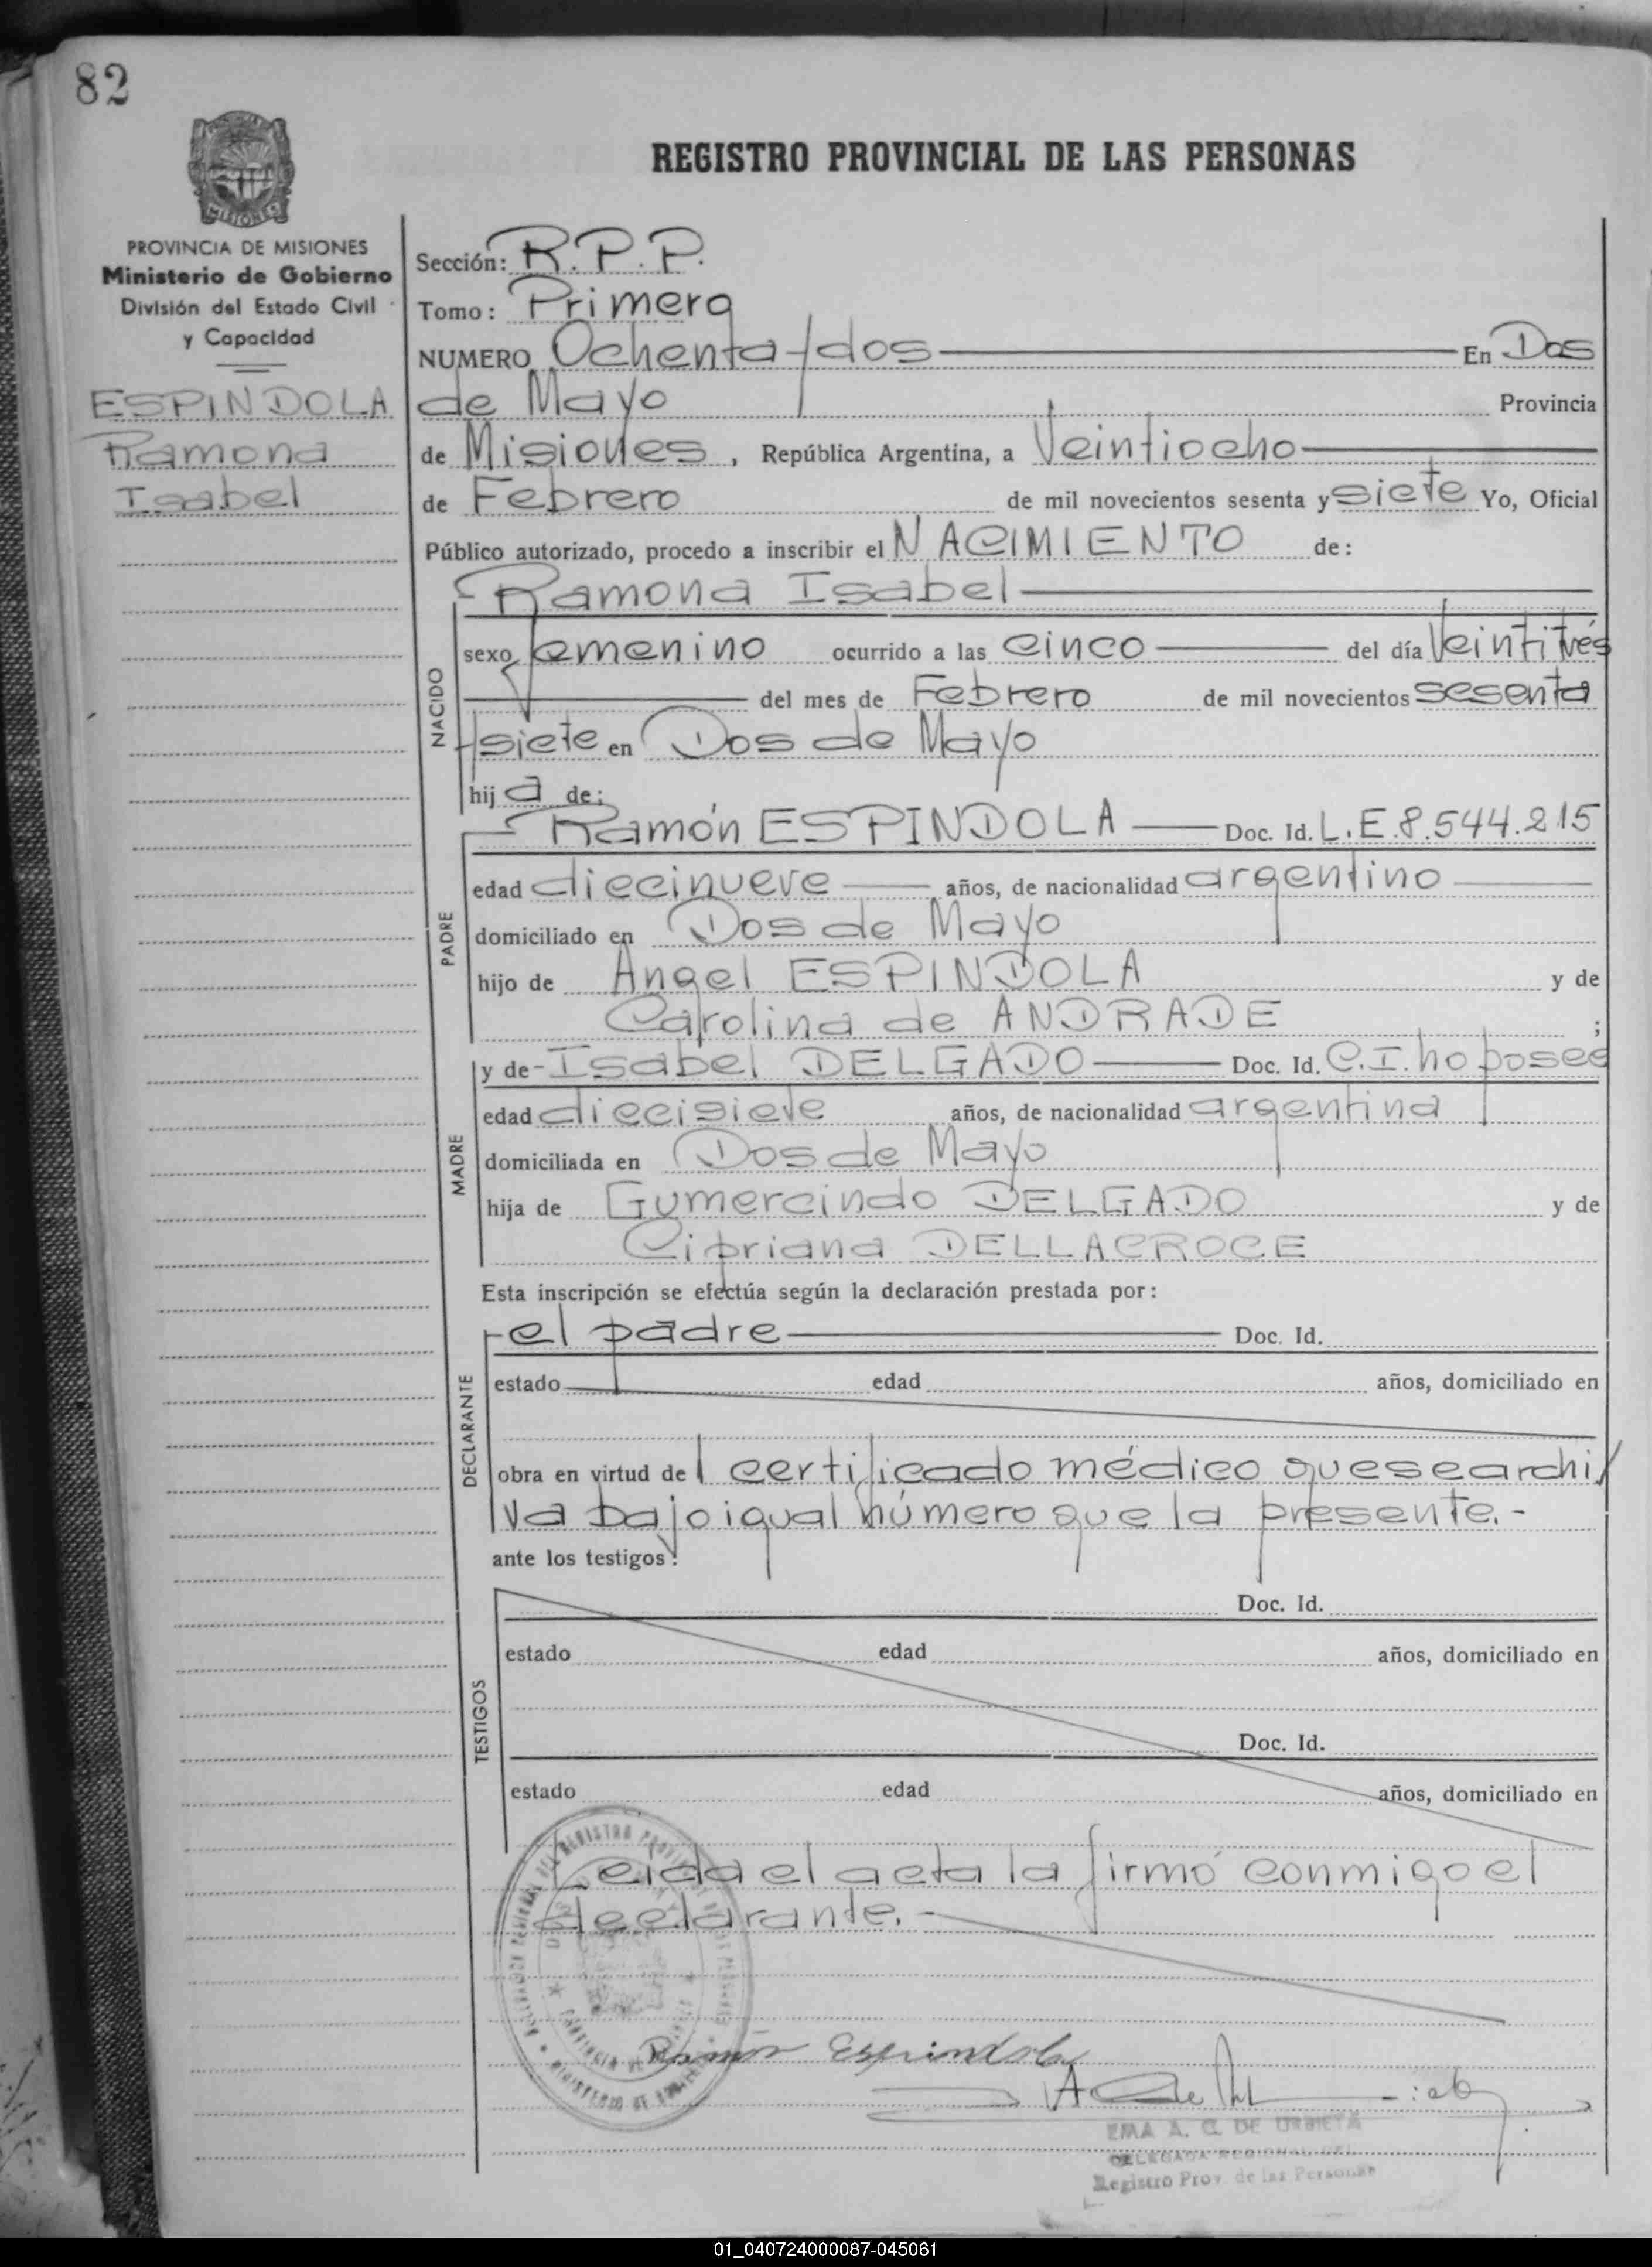 82
REGISTRO PROVINCIAL DE LAS PERSONAS
MISIONES
PROVINCIA DE MISIONES
Ministerio de Gobierno
División del Estado Civil
y Capacidad
ESPINDOLA
Ramona
Isabel
Sección: R.P.P.
Tomo: Primero
NUMERO Ochenta y dos En Dos
de Mayo Provincia
de Misiones, República Argentina, a Veintiocho
de Febrero de mil novecientos sesenta y siete Yo, Oficial
Público autorizado, procedo a inscribir el NACIMIENTO de:
Ramona Isabel
NACIDO
sexo femenino ocurrido a las cinco del día Veintitrés
del mes de Febrero de mil novecientos sesenta
y siete en Dos de Mayo
hija de:
PADRE
Ramón ESPINDOLA Doc. Id. L.E 8.544.215
edad diecinueve años, de nacionalidad argentino
domiciliado en Dos de Mayo
hijo de Angel ESPINDOLA y de
Carolina de ANDRADE ;
MADRE
y de- Isabel DELGADO Doc. Id. C.I. no posee
edad diecisiete años, de nacionalidad argentina
domiciliada en Dos de Mayo
hija de Gumercindo DELGADO y de
Cipriana DELLACROCE
Esta inscripción se efectúa según la declaración prestada por:
DECLARANTE
el padre Doc. Id.
estado edad años, domiciliado en
obra en virtud del certificado médico que se archi/
va bajo igual número que la presente.-
ante los testigos:
TESTIGOS
Doc. Id.
estado edad años, domiciliado en
Doc. Id.
estado edad años, domiciliado en
Leida el acta la firmó conmigo el
declarante.-
Ramón Espindola
EMA A. C. DE URBIETA
DELEGADA REGIONAL DEL
Registro Prov. de las Personas
01_040724000087-045061